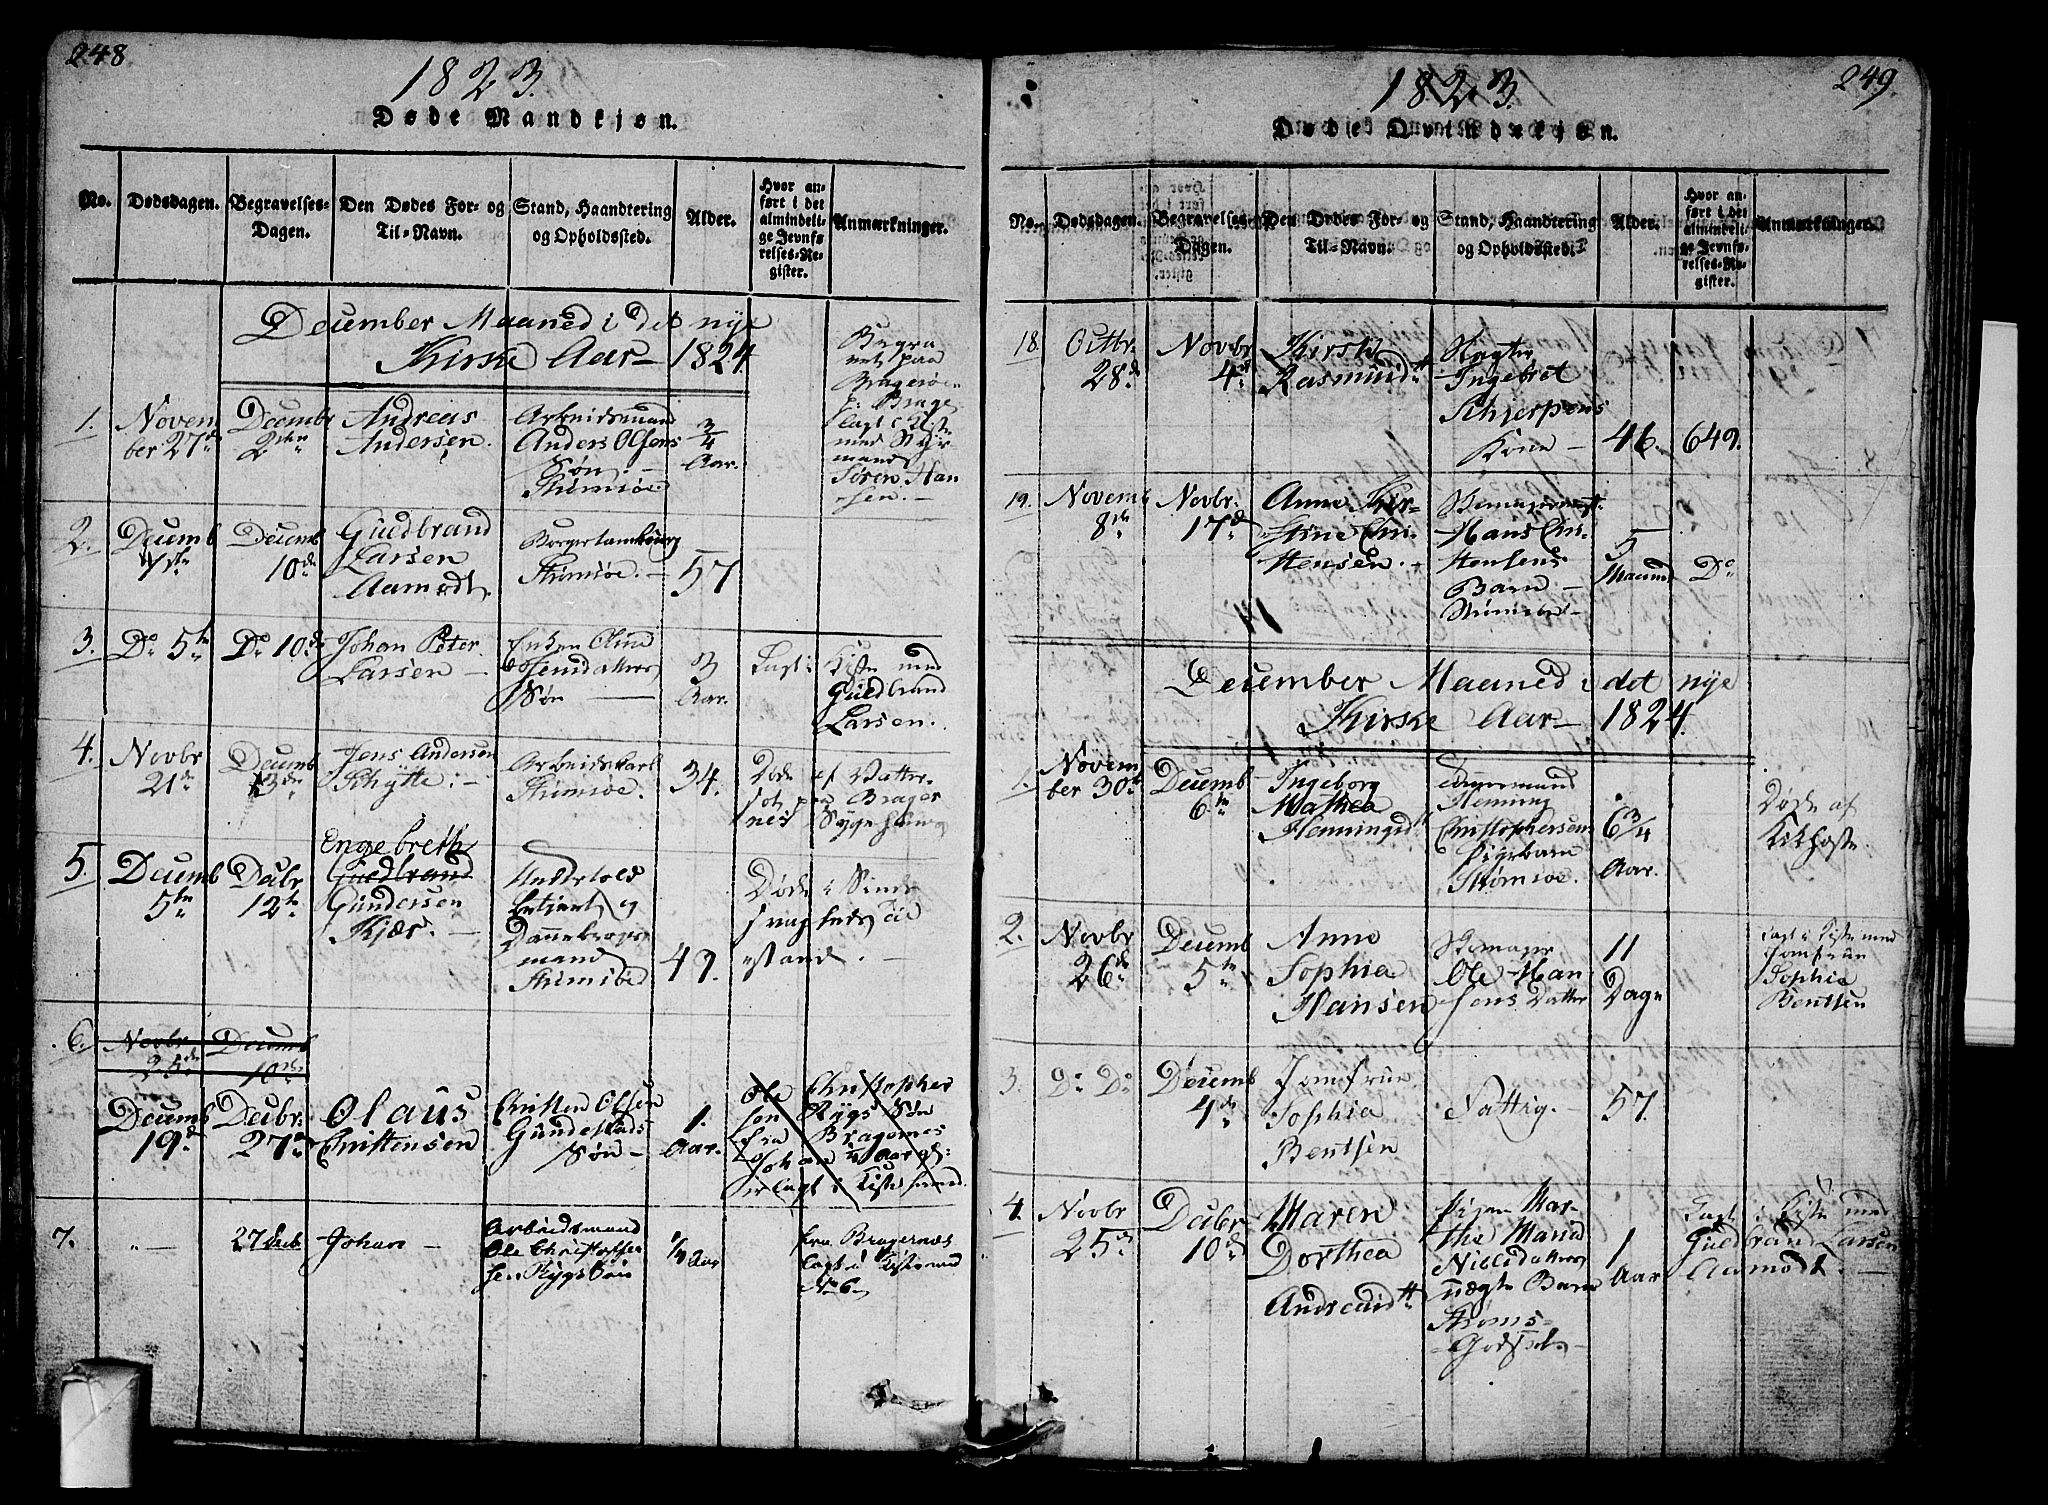 248
1823.
Døde Mandkjøn.
No.
Dødsdagen.
Begravelses-
Dagen.
Den Dødes For- og
Til-Navn.
Stand, Haandtering
og Opholdssted.
Alder.
Hvor an-
ført i det
almindeli-
ge Jevnfø-
relses-Re-
gister.
Anmærkninger.
December Maaned i det nye
Kirke Aar 1824
1.
Novem
ber 27d
Decembr
2den
Andreas
Andersen.
Arbeidsmand
Anders Olsens
Søn. –
Strømsøe
3/4
Aar.
Begra
vet paa
Bragerøen
lagt i Kiste
med
Søren Han
sen. –
2.
Decemb
1ste
Decemb
10de
Gudbrand
Larsen
Aamodt.
Strømsøe. –
57
3.
Do 5te
Do 10de
Johan Peter
Larsen –
Enken Oline
Søn –
3
Aar.
Lagt i
Kiste med
Gudbrand
Larsen.
4.
Novbr
21de
Decemb
3de
Jens Andersen
Schytte. –
Arbeidskarl
Strømsøe.
34.
Døde af Vatter-
sot paa Brager
nes Sygehuus
5.
Decemb
5te
Decbr
12te
Engebreth
Gudbrand
Gundersen
Kjær. –
Underhold
og
Dannebrogs
mand
Strømsøe
49.
Døde i Sinds
svagheds til
stand. –
6.
Novbr
25de
Decemb
10de
Decemb
19d
Decbr.
27de
Olaus
Christensen
Christen Olsen
Søn –
1.
Aar.
Ole Christopher
sen Rygs Søn
fra Bragernes
Johan
er lagt i Kiste
7.
– " –
27 Decb
Johan –
Arbeidsmand
Ole Christoffer
sen Rygs Søn
1/4 Aar
fra Bragernæs
lagt i Kiste med
No 6
249.
1823.
Døde Qvindekjøn.
No.
Dødsdagen.
Begravelses-
Dagen.
Den Dødes For- og
Til-Navn.
Stand, Haandtering
og Opholdssted.
Alder.
Hvor an-
ført i det
almindeli-
ge Jevnfø-
relses-Re-
gister.
Anmærkninger.
18.
Octbr.
28de
Novbr
4de
Kirste
Rasmusdtr
Ingebret
Schjerpens
Kone –
46.
649.
19.
Novemb
8de
Novbr.
17de
Anne Kir-
stine Chri-
stensen. –
Hans Chri-
stensens
Barn –
Strømsøe –
5
Maaned
Do
December Maaned i det nye
Kirke Aar 1824.
1.
Novem
ber 30te
Decemb
6te
Ingeborg
Mathea
Henningsdtr
Henning
Christophersens
Pigebarn
Strømsøe.
6 3/4
Aar.
Døde af
Kikhoste.
2.
Novbr
26de
Decemb
5te
Anne
Sophia
Hansen
Ole Han
sens Datter
11
Dage
Lagt i Kiste med
Jomfrue
Sophia
Bentsen
3.
Do Do
Decemb
4de
Jomfrue
Sophia
Bentsen
Fattig. –
57.
4.
Novbr
25de
Decbr
10de
Maren
Dorthea
Andreasdtr
Pigen Mar-
the Maria
Nielsdatters
uægte Barn
Strøms-
Godset –
1
Aar
Lagt i Kiste med
Gudbrand Larsen
Aamodt. –